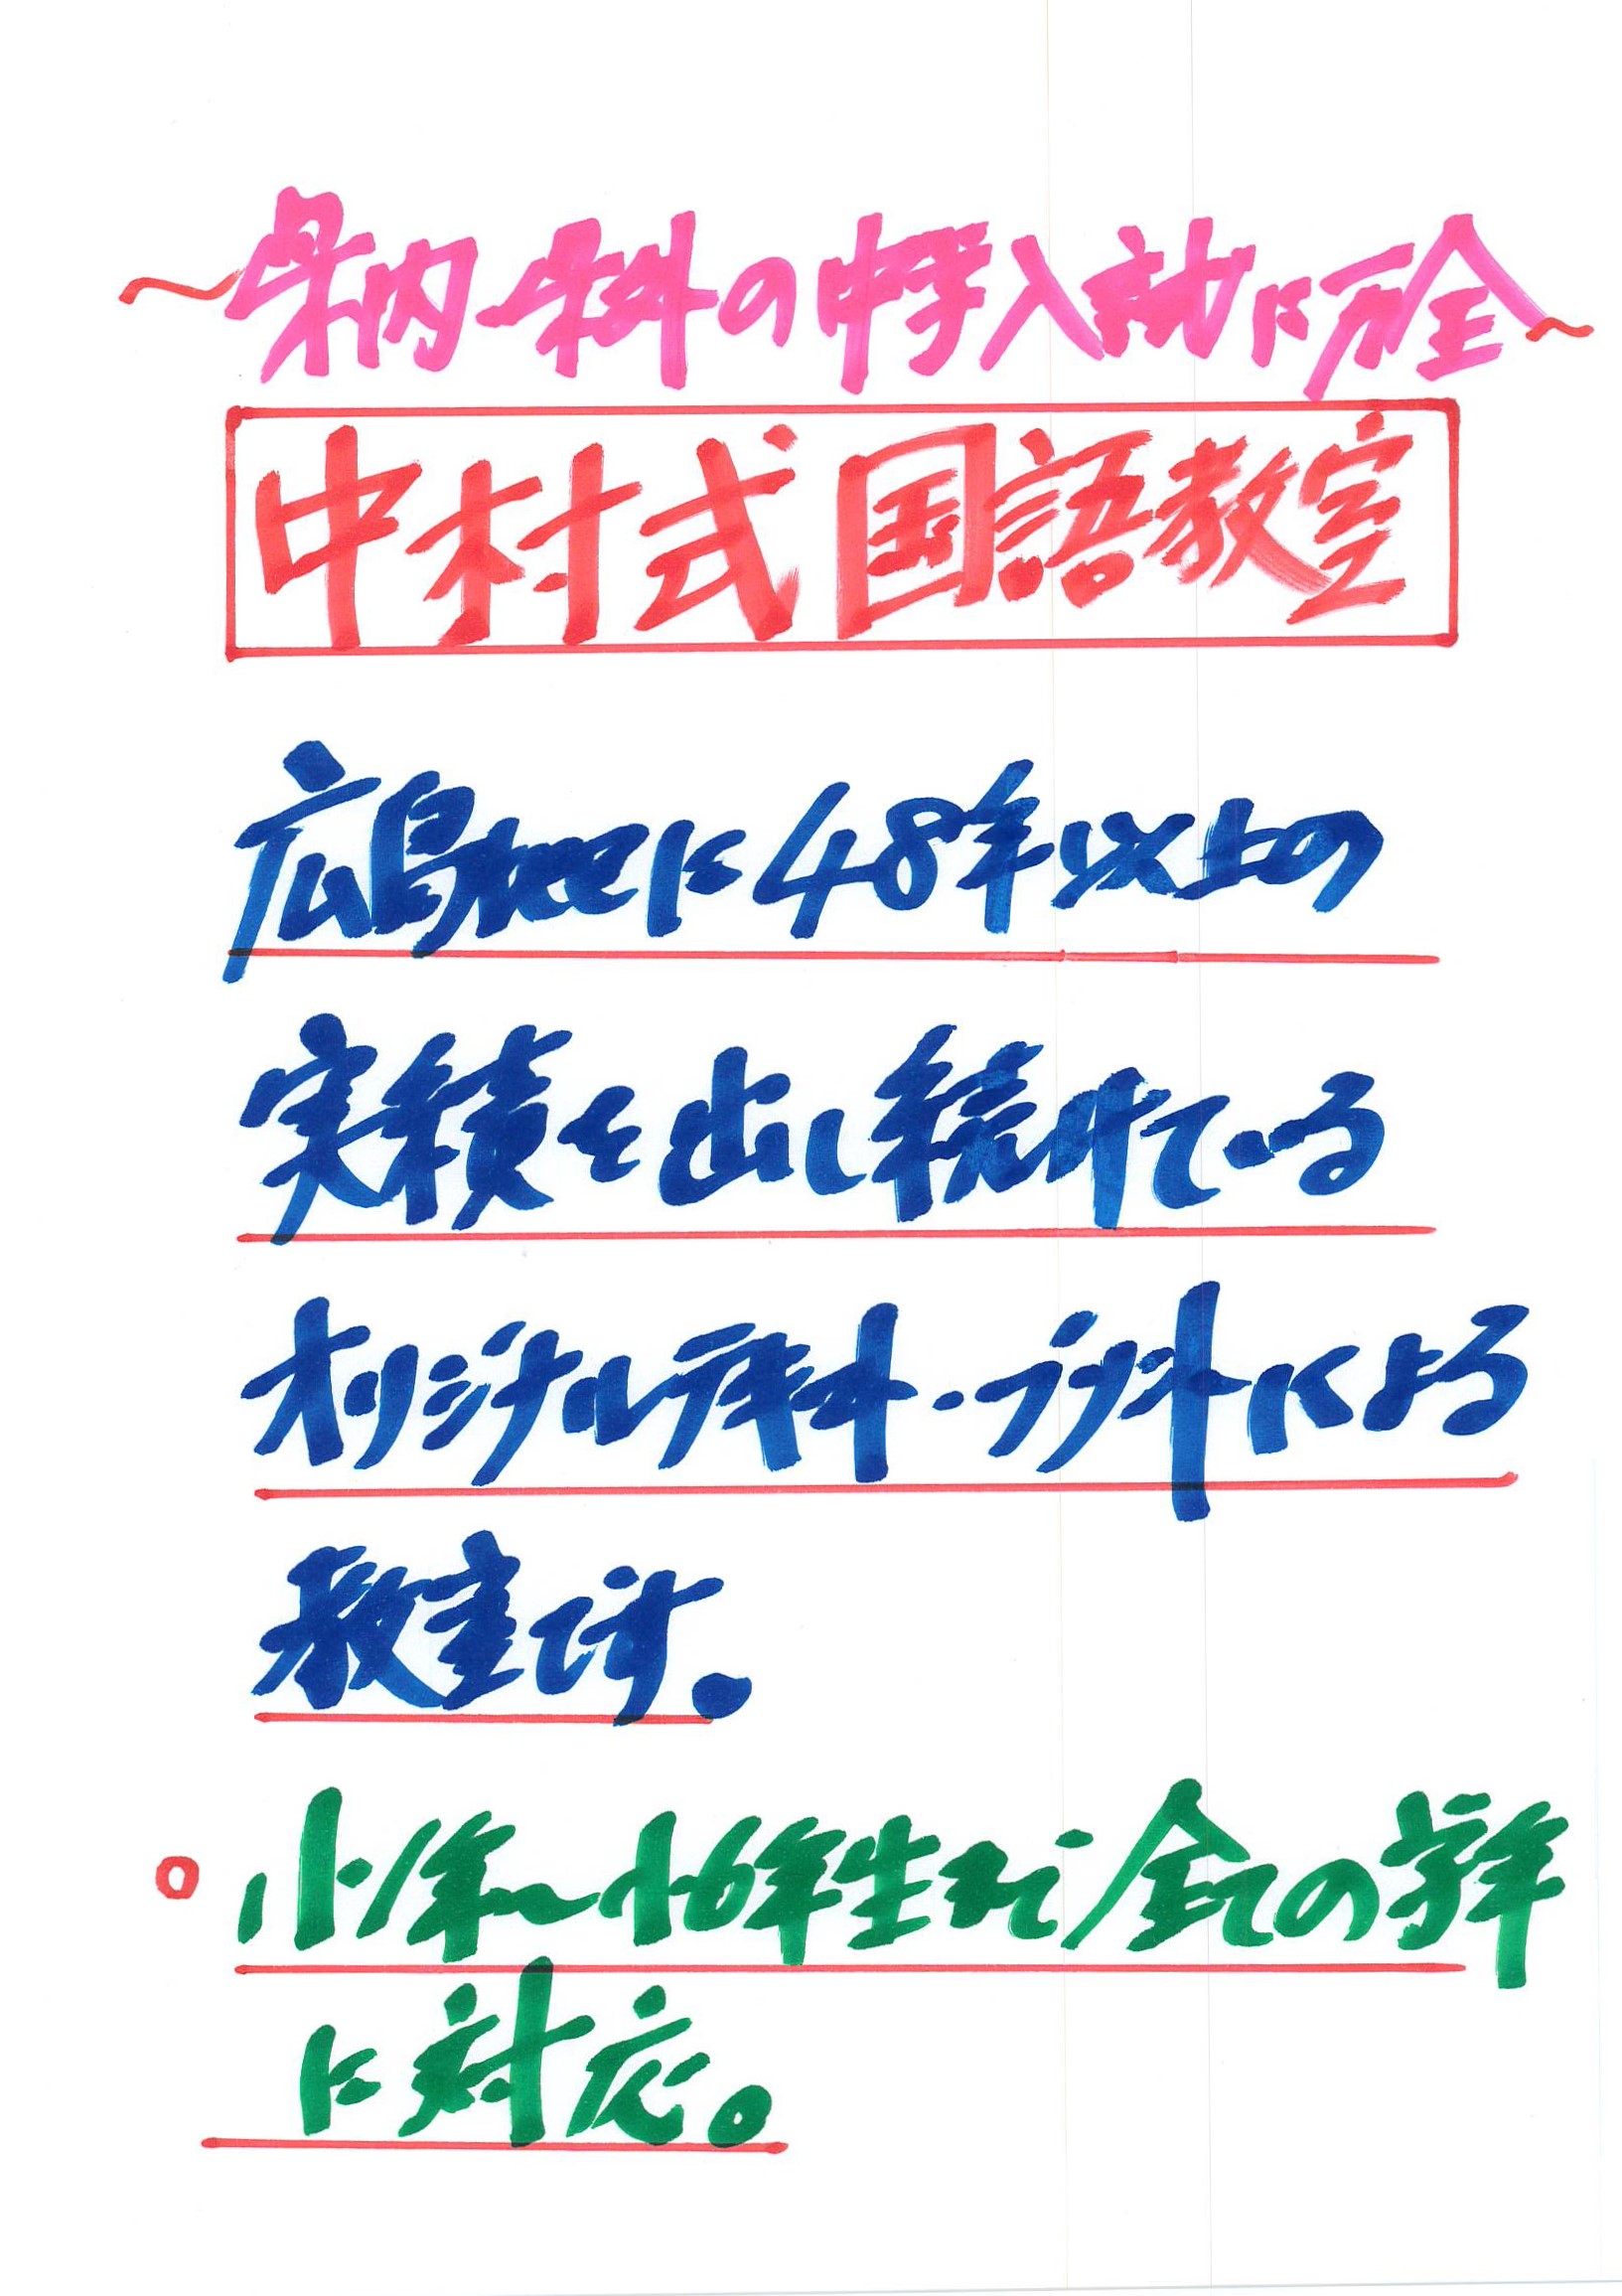 ~県内外の中学入試に万全~
中村式国語教室
広島校に48年以上の
実績を出し続けている
オリジナルテキスト・プリントによる
教室です。
○小1年~小6年生まで全ての学年
に対応。